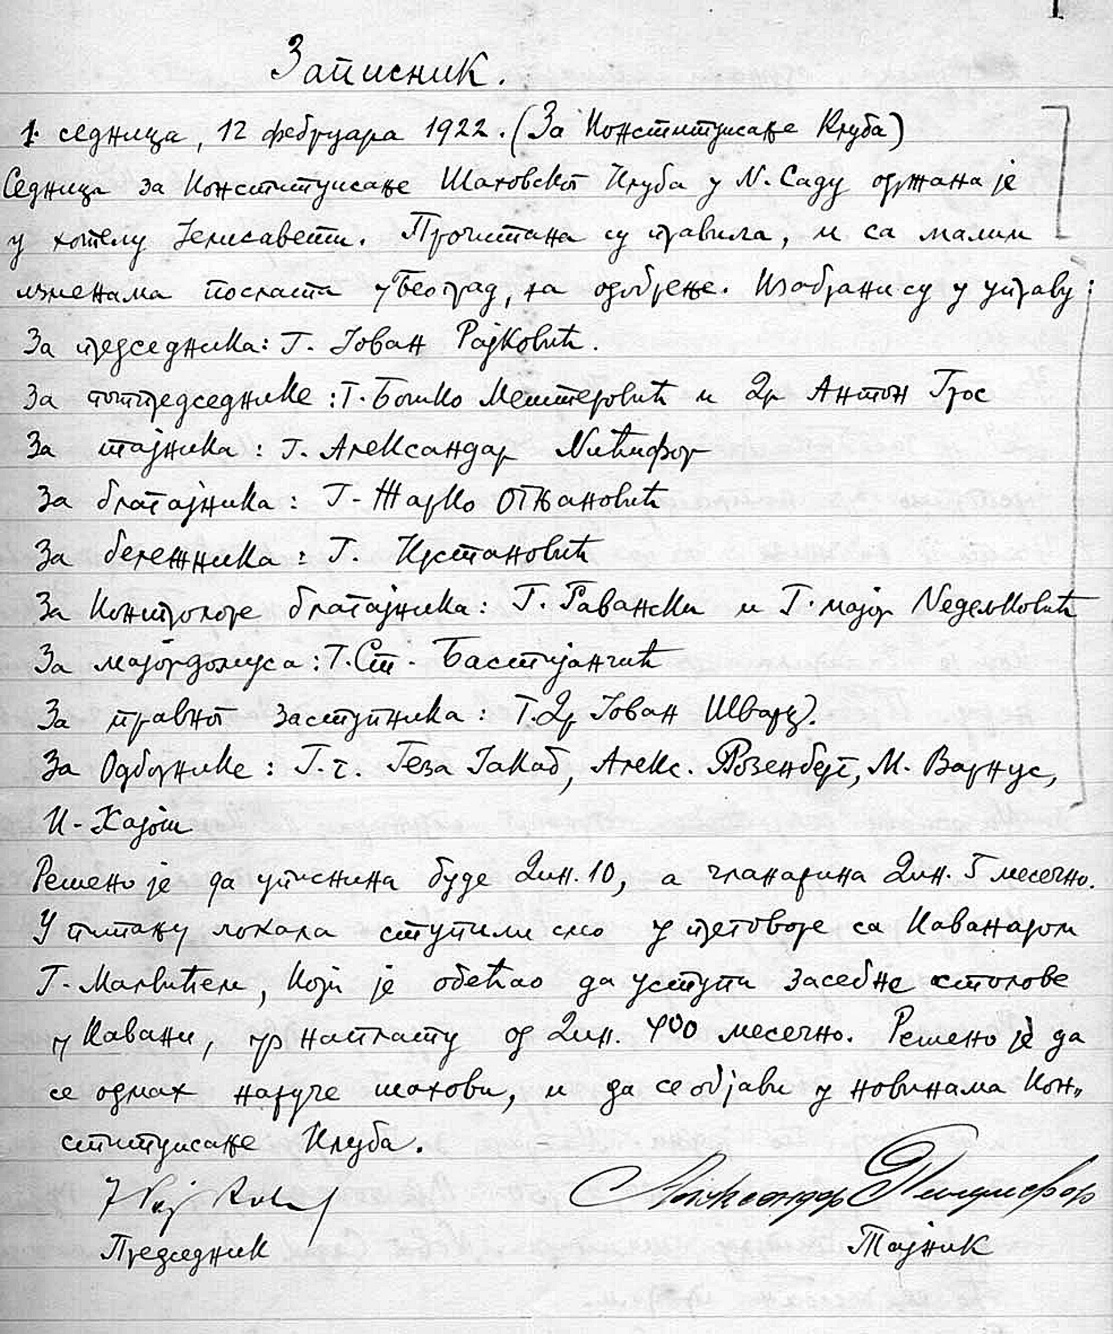 1
Записник.
1. седница, 12 фебруара 1922. (За Конституисање Клуба)
Седница за Конституисање Шаховског Клуба у Н. Саду одржана је
у хотелу Јелисавети. Прочитана су правила, и са малим
изменама послата у Београд, на одобрење. Изабрани су у управу:
За председника: Г. Јован Рајковић.
За потпредседнике: Г. Бошко Мештеровић и Др Антон Грос
За тајника: Г. Александар Нићифор
За благајника: Г. Жарко Огњановић
За бележника: Г. Крстановић
За Контролоре благајника: Г. Равански и Г. мајор Недељковић
За мајордомуса: Г. Ст. Бастијанчић
За правног заступника: Г. Др Јован Шварц.
За Одборнике: Г.г. Геза Јакоб, Алекс. Розенберг, М. Варнус,
И. Хајош
Решено је да уписнина буде Дин. 10, а чланарина Дин. 5 месечно.
У питању локала ступили смо у преговоре са Каванаром
Г. Малвићем, Који је обећао да уступи засебне столове
у Кавани, уз наплату од Дин. 400 месечно. Решено је да
се одмах наруче шахови, и да се објави у новинама Кон„
ституисање Клуба.
Александар Нићифор
Председник Тајник